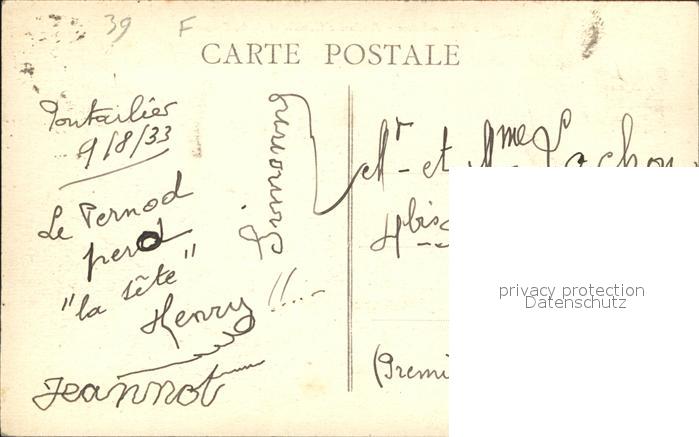 39 F
CARTE POSTALE
Pontailler
9/8/33
Le Pernod
perd
"la sête"
Henry !!..-
Jeannot
Mr - et Mme
4 bis
(Premi
privacy protection
Datenschutz